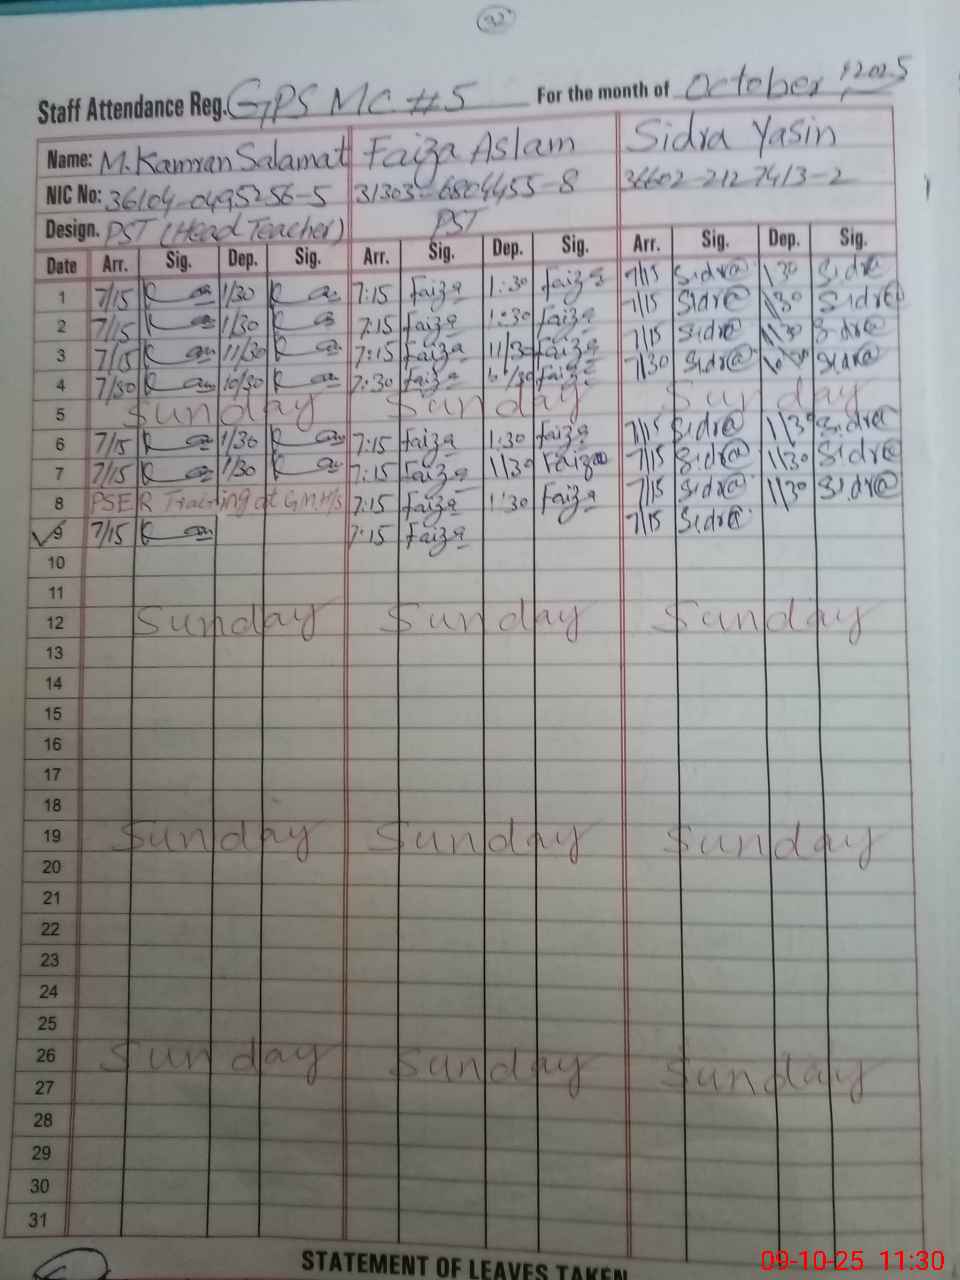 92
Staff Attendance Reg. GPS MC #5 For the month of October, 2025
Name: M. Kamran Salamat Faiza Aslam Sidra Yasin
NIC No: 36104-0495256-5 31303-6804455-8 36602-2127413-2
Design. PST (Head Teacher) PST
Date Arr. Sig. Dep. Sig. Arr. Sig. Dep. Sig. Arr. Sig. Dep. Sig.
1 7/15 1/30 7:15 Faiza 1:30 Faiza 7/15 Sidra 1/30 Sidra
2 7/15 1/30 7:15 Faiza 1:30 Faiza 7/15 Sidra 1/30 Sidra
3 7/15 11/30 7:15 Faiza 11/30 Faiza 7/15 Sidra 11/30 Sidra
4 7/30 10/30 7:30 Faiza 10/30 Faiza 7/30 Sidra Sidra
5 Sunday Sunday Sunday
6 7/15 1/30 7:15 Faiza 1:30 Faiza 7/15 Sidra 1/30 Sidra
7 7/15 1/30 7:15 Faiza 1/30 Faiza 7/15 Sidra 1/30 Sidra
8 PSER Training at 7:15 Faiza 1:30 Faiza 7/15 Sidra 1/30 Sidra
9 7/15 7:15 Faiza 7/15 Sidra
10
11
12 Sunday Sunday Sunday
13
14
15
16
17
18
19 Sunday Sunday Sunday
20
21
22
23
24
25
26 Sunday Sunday Sunday
27
28
29
30
31
STATEMENT OF LEAVES TAKEN
09-10-25 11:30